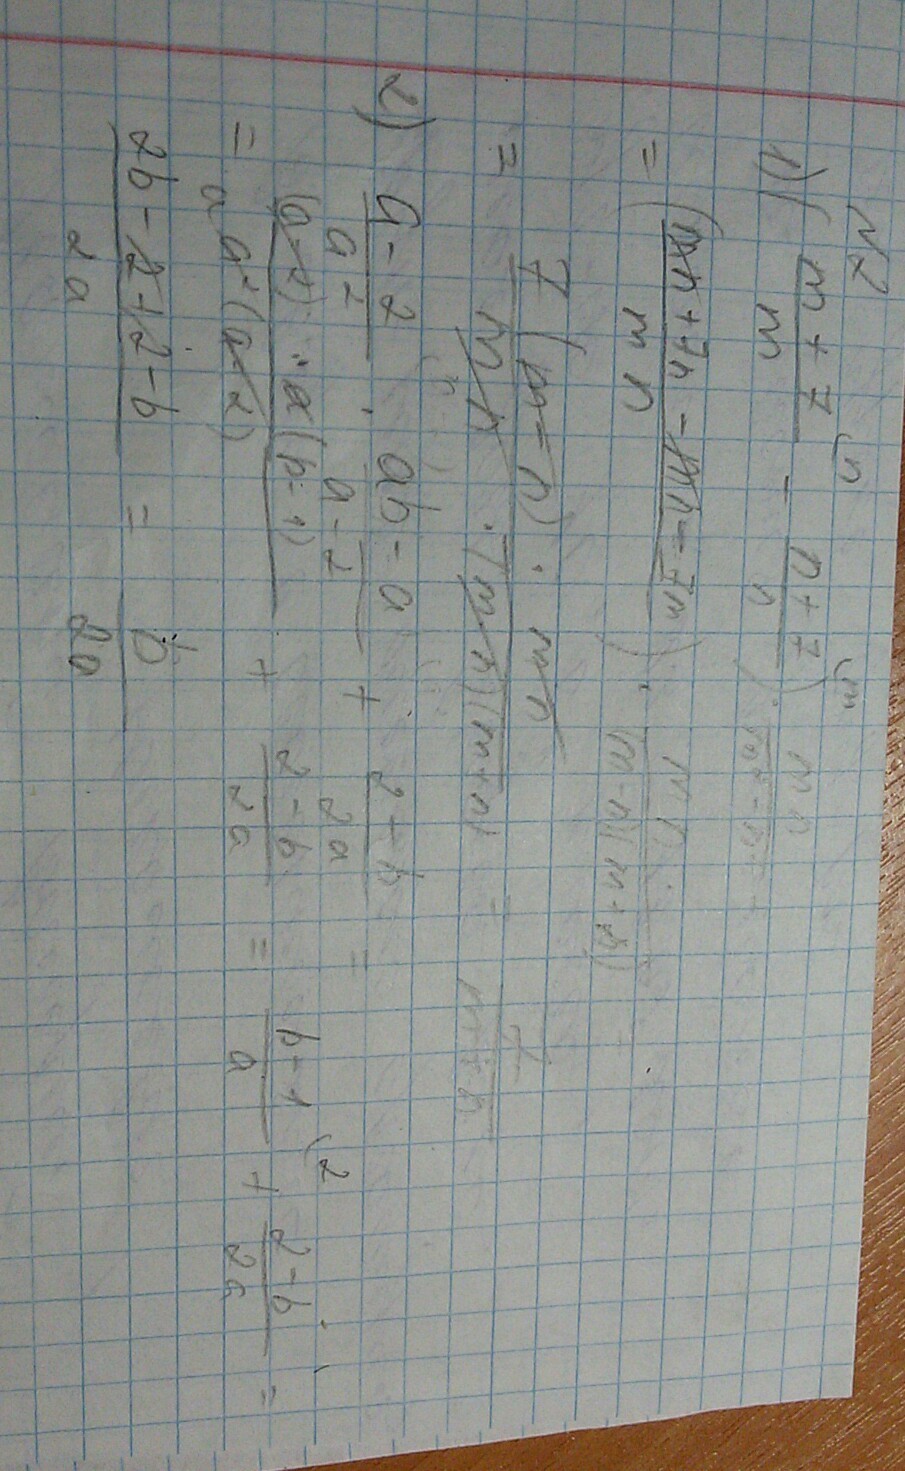 N2
1) ((m + 7)/m (n - (n + 7)/n (m) · mn/(m² - n²) =
= ((mn + 7n - mn - 7m)/mn) · mn/((m - n)(m + n)) =
= 7(m - n) · mn =
2) (a - 2)/a² · (ab - a)/(a - 2) + (2 - b)/2a =
= ((a - 2) · a(b - 1))/(a²(a - 2)) + (2 - b)/2a = (b - 1)/a (2 + (2 - b)/2a =
(2b - 2 + 2 - b)/2a = b/2a